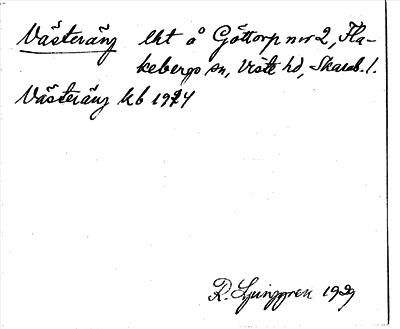 Västeräng lht å Göttorp nr 2, Fla-
kebergs sn, Viste hd, Skarab. l.
Västeräng kb 1924
R. Ljunggren 1929